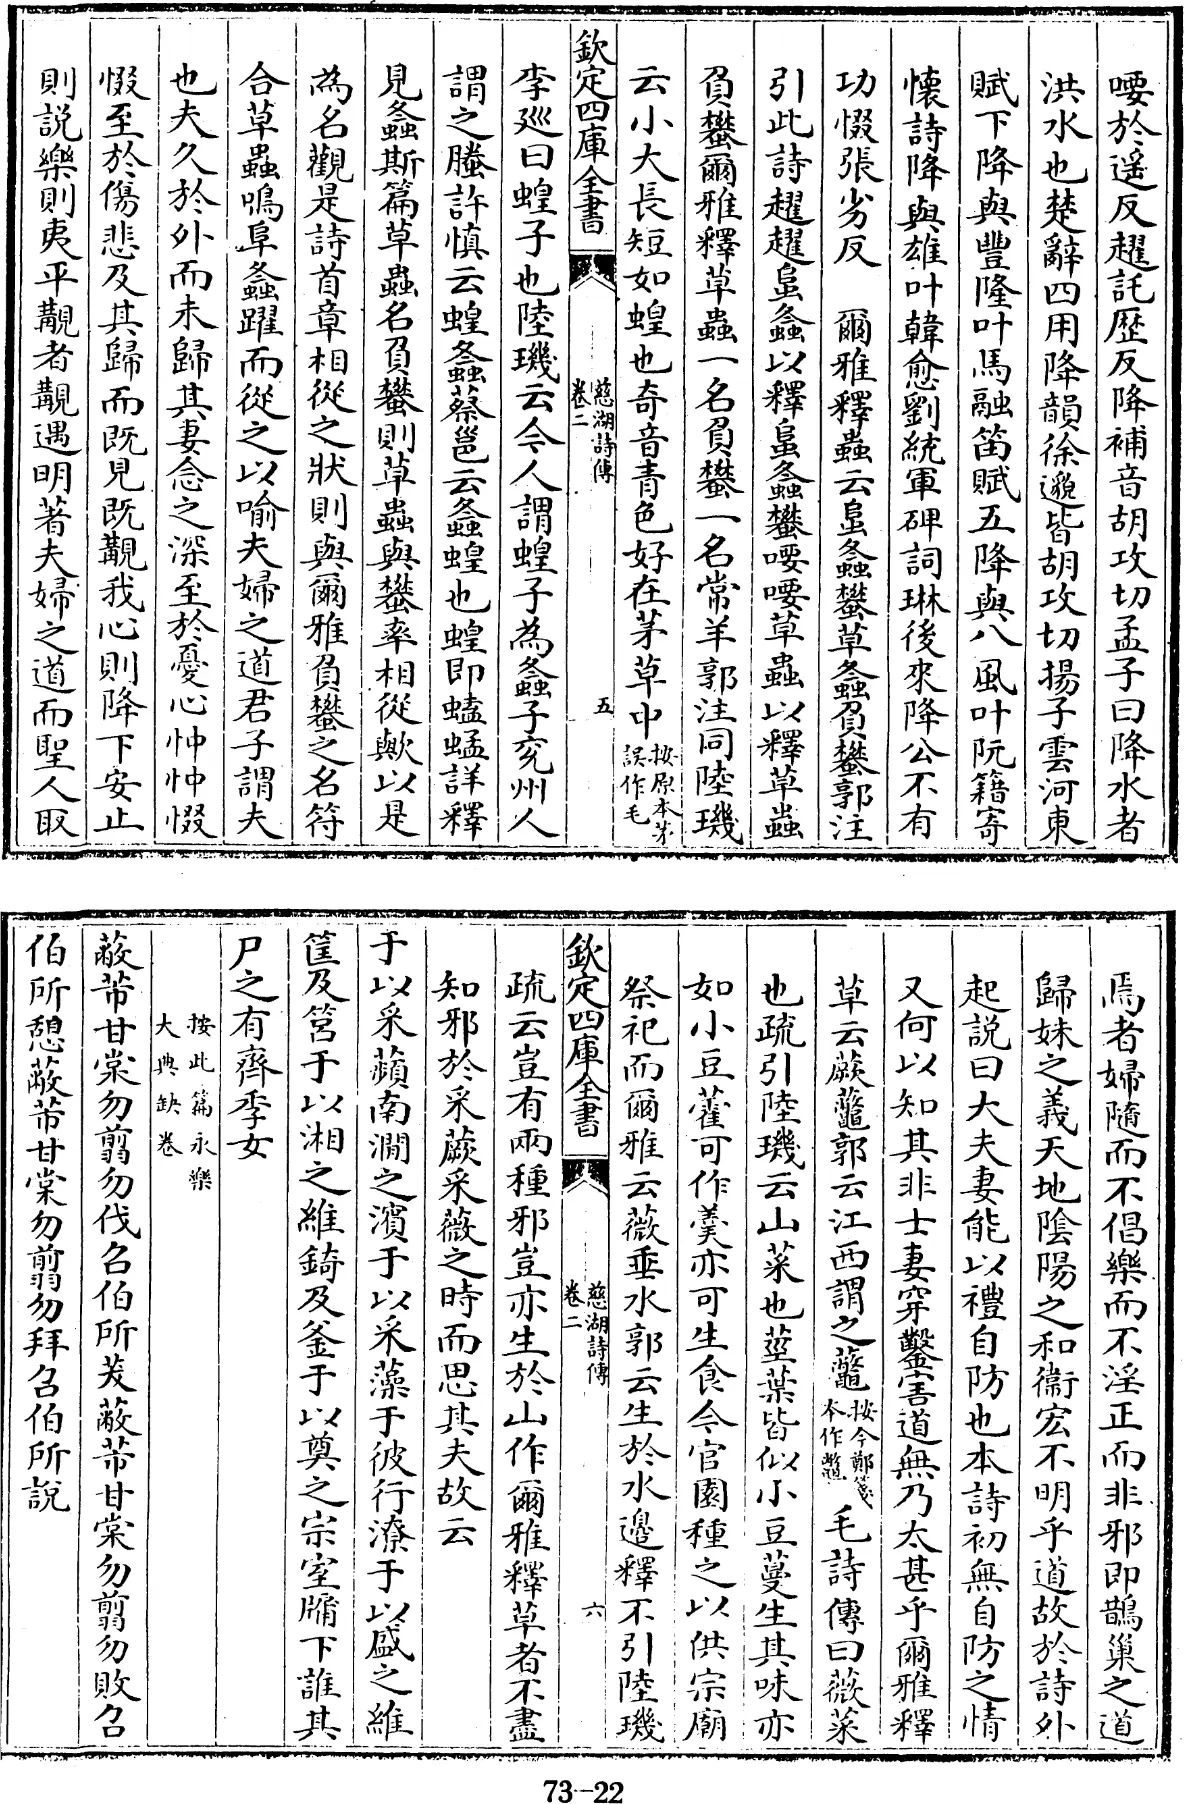 喓於遥反趯託歷反降補音胡攻切孟子曰降水者
洪水也楚辭四用降韻徐邈皆胡攻切揚子雲河東
賦下降與豐隆叶馬融笛賦五降與八風叶阮籍寄
懷詩降與雄叶韓愈劉統軍碑詞琳後來降公不有
功惙張劣反　爾雅釋蟲云蛗螽蠜草螽負蠜郭注
引此詩趯趯蛗螽以釋蛗螽蠜喓喓草蟲以釋草蟲
負蠜爾雅釋草蟲一名負蠜一名常羊郭注同陸璣
云小大長短如蝗也奇音青色好在茅草中按原本茅誤作毛
欽定四庫全書　慈湖詩傳卷二　五
李廵曰蝗子也陸璣云今人謂蝗子為螽子兖州人
謂之螣許慎云蝗螽蔡邕云螽蝗也蝗即蟻蜢詳釋
見螽斯篇草蟲名負蠜則草蟲與蠜率相從歟以是
為名觀是詩首章相從之狀則與爾雅負蠜之名符
合草蟲鳴阜螽躍而從之以喻夫婦之道君子謂夫
也夫久於外而未歸其妻念之深至於憂心忡忡惙
惙至於傷悲及其歸而既見既覯我心則降下安止
則說樂則夷平覯者覯遇明著夫婦之道而聖人取
焉者婦隨而不倡樂而不淫正而非邪即鵲巢之道
歸妹之義天地陰陽之和衞宏不明乎道故於詩外
起説曰大夫妻能以禮自防也本詩初無自防之情
又何以知其非士妻穿鑿害道無乃太甚乎爾雅釋
草云蕨虌郭云江西謂之虌按今鄭箋本作鼈毛詩傳曰薇菜
也疏引陸璣云山菜也莖葉皆似小豆蔓生其味亦
如小豆藿可作羹亦可生食今官園種之以供宗廟
祭祀而爾雅云薇垂水郭云生於水邊釋不引陸璣
欽定四庫全書　慈湖詩傳卷二　六
疏云豈有兩種邪豈亦生於山作爾雅釋草者不盡
知邪於采蕨采薇之時而思其夫故云
于以采蘋南澗之濱于以采藻于彼行潦于以盛之維
筐及筥于以湘之維錡及釜于以奠之宗室牖下誰其
尸之有齊季女
按此篇永樂
大典缺卷
蔽芾甘棠勿翦勿伐召伯所茇蔽芾甘棠勿翦勿敗召
伯所憩蔽芾甘棠勿翦勿拜召伯所説
73-22